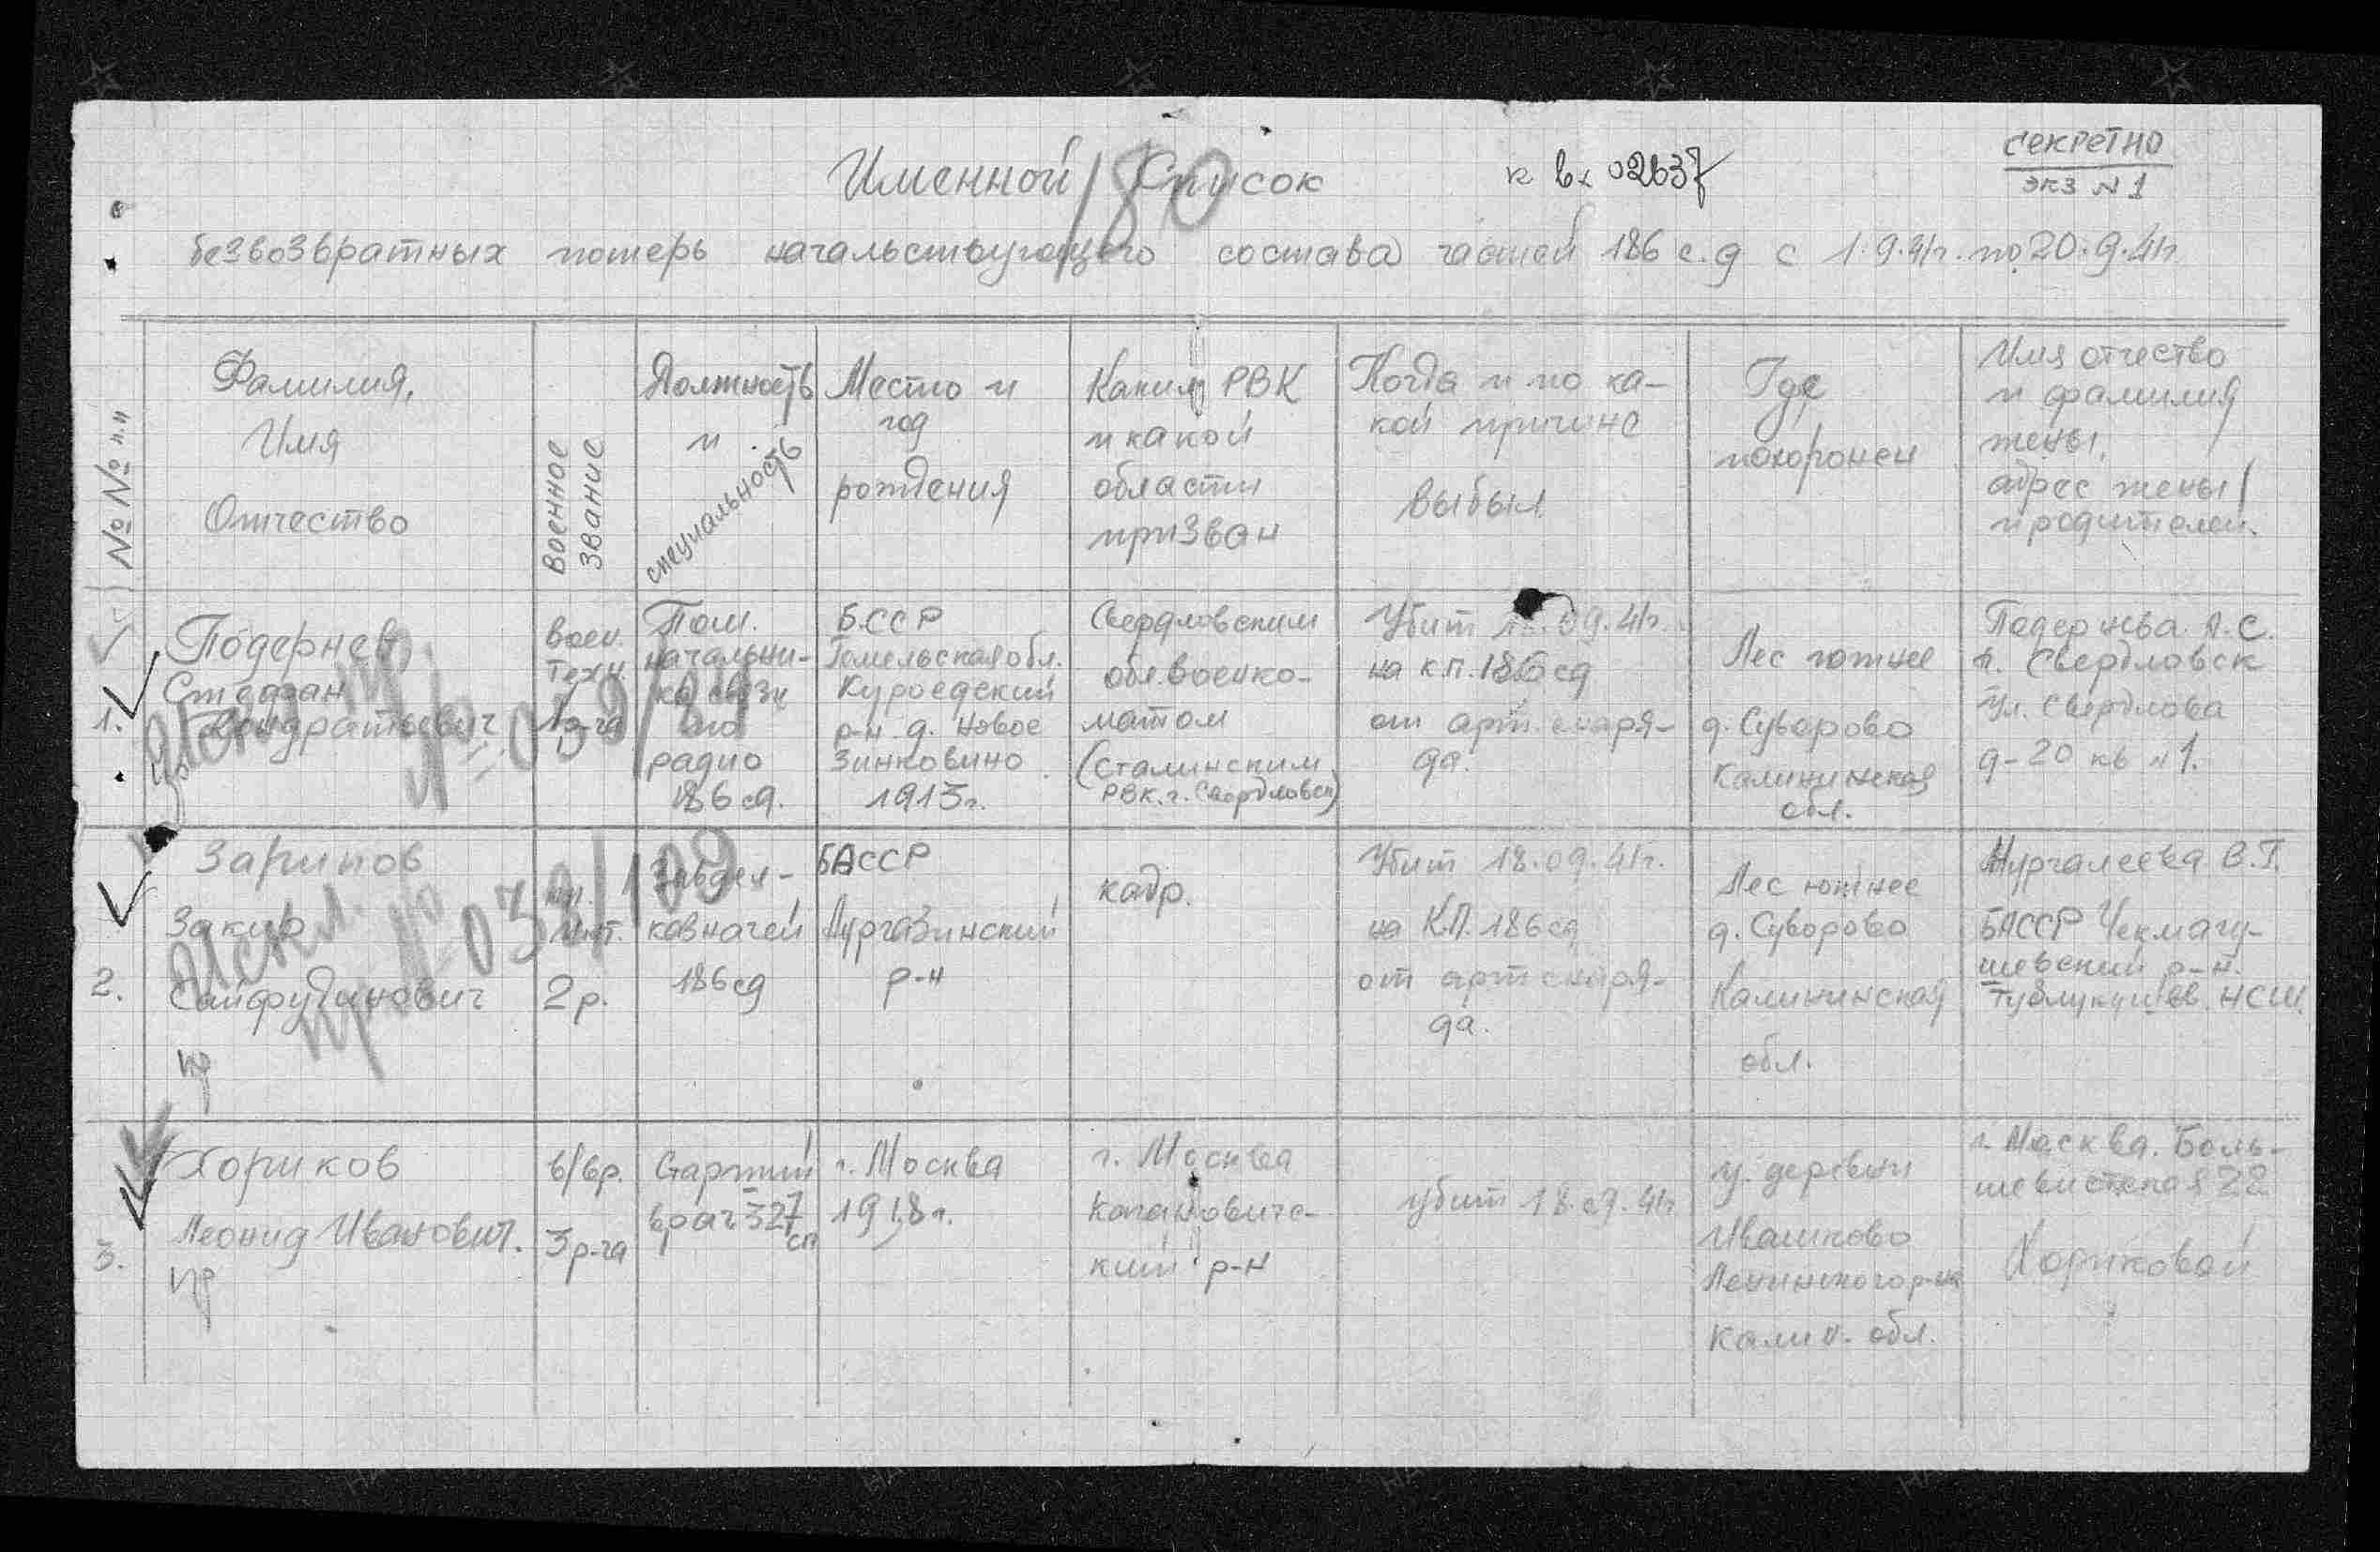 СЕКРЕТНО
экз № 1
к вх 02637
Именной Список
180
безвозвратных потерь начальствующего состава частей 186 с.д с 1.9.41г. по 20.9.41г
№№ п.п
Фамилия,
Имя
Отчество
Военное
звание
Должность
и
специальность
Место и
год
рождения
Каким РВК
и какой
области
призван
Когда и по ка-
кой причине
выбыл
Где
похоронен
Имя отчество
и фамилия
жены,
адрес жены
и родителей.
1.
Подернев
Степан
Кондратьевич
воен.
техн.
1р-га
Пом.
начальни-
ка связи
по
радио
186 сд.
БССР
Гомельская обл.
Куроедский
р-н д. Новое
Зинковино
1913г.
Свердловским
обл. военко-
матом
(Сталинским
РВК. г. Свердловск)
Убит 18.09.41г.
на к.п. 186 сд
от арт. снаря-
да.
Лес южнее
д. Суворово
Калининская
обл.
Подернева. А.С.
г. Свердловск
Ул. Свердлова
д-20 кв №1.
Искл.
пр № 039/41
2.
Зарипов
Закир
Сайфудинович
пр
инт.
2р.
Завдел-
казначей
186 сд
БАССР
Аургазинский
р-н
кадр.
Убит 18.09.41г.
на К.П. 186 сд
от арт снаря-
да.
Лес южнее
д. Суворово
Калининская
обл.
Нургалеева В.Г.
БАССР Чекмагу-
шевский р-н.
НСШ.
Искл.
пр №
3.
Хориков
Леонид Иванович.
пр
в/вр.
3р-га
Старший
врач 327
сп
г. Москва
1918г.
г. Москва
Кагановичс-
кий р-н
убит 18.09.41г
у. деревни
Ивашково
Ленинского р-на
Калин. обл.
г. Москва. Боль-
шевистская 22
Хориковой